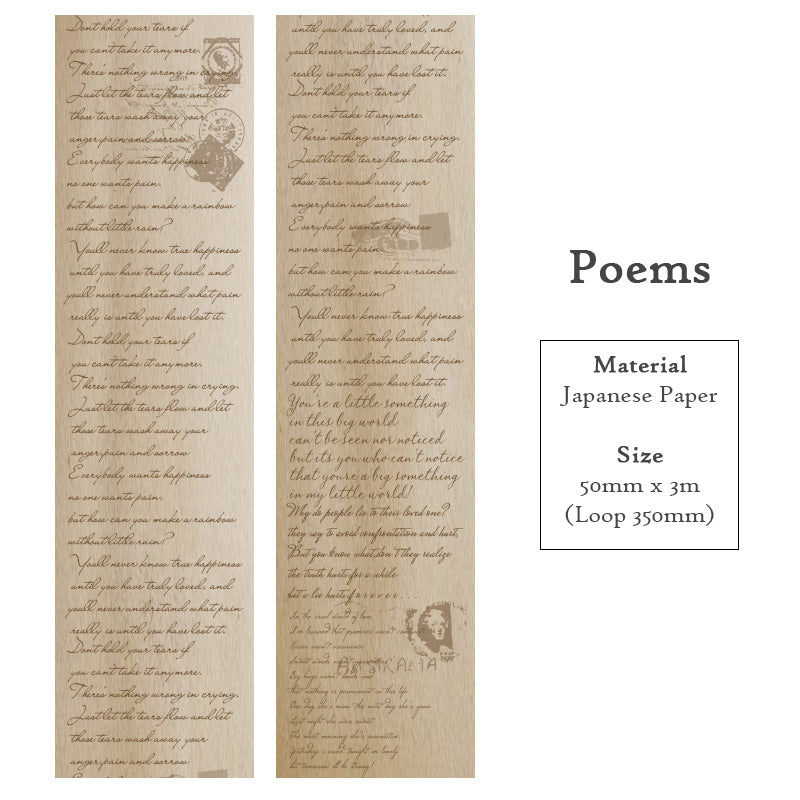 Dont hold your tears if
you cant take it anymore.
There's nothing wrong in crying.
Just let the tears flow and let
those tears wash away your
anger, pain and sorrow
Everybody wants happiness
no one wants pain.
but how can you make a rainbow
without little rain?
Youll never know true happiness
until you have truly loved, and
youll never understand what pain
really is until you have lost it.
Dont hold your tears if
you cant take it anymore.
There's nothing wrong in crying.
Just let the tears flow and let
those tears wash away your
anger, pain and sorrow
Everybody wants happiness
no one wants pain.
but how can you make a rainbow
without little rain?
Youll never know true happiness
until you have truly loved, and
youll never understand what pain
really is until you have lost it.
Dont hold your tears if
you cant take it anymore.
There's nothing wrong in crying.
Just let the tears flow and let
those tears wash away your
anger, pain and sorrow
until you have truly loved, and
youll never understand what pain
really is until you have lost it.
Dont hold your tears if
you cant take it anymore.
There's nothing wrong in crying.
Just let the tears flow and let
those tears wash away your
anger, pain and sorrow
Everybody wants happiness
no one wants pain.
but how can you make a rainbow
without little rain?
Youll never know true happiness
until you have truly loved, and
youll never understand what pain
really is until you have lost it.
You're a little something
in this big world
can't be seen nor noticed
but its you who can't notice
that youre a big something
in my little world!
Why do people lie to their loved one?
they say to avoid confrontation and hurt,
But you know what, don't they realize
the truth hurts for a while
but a lie hurts f o r e v e r . . .
In the cruel world of love
I've learned that promises aren't
Kisses aren't assurance
Sweet words
AUSTRALIA
Big hugs aren't
that nothing is permanent in this life.
One day she's mine the next day she's gone.
Last night she was sweet
The next morning she's insensitive.
Yesterday i cried tonight im lonely
but tomorrow ill be strong!
Poems
Material
Japanese Paper
Size
50mm x 3m
(Loop 350mm)